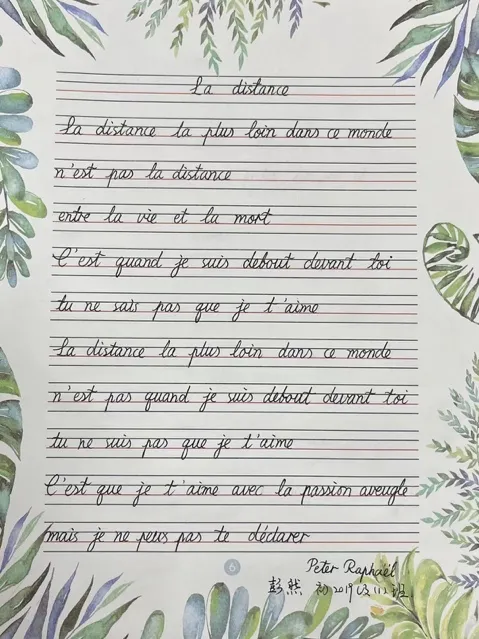 La distance
La distance la plus loin dans ce monde
n'est pas la distance
entre la vie et la mort
C'est quand je suis debout devant toi
tu ne sais pas que je t'aime
La distance la plus loin dans ce monde
n'est pas quand je suis debout devant toi
tu ne suis pas que je t'aime
C'est que je t'aime avec la passion aveugle
mais je ne peus pas te déclarer
6
Peter Raphaël
彭然 初2019级112班